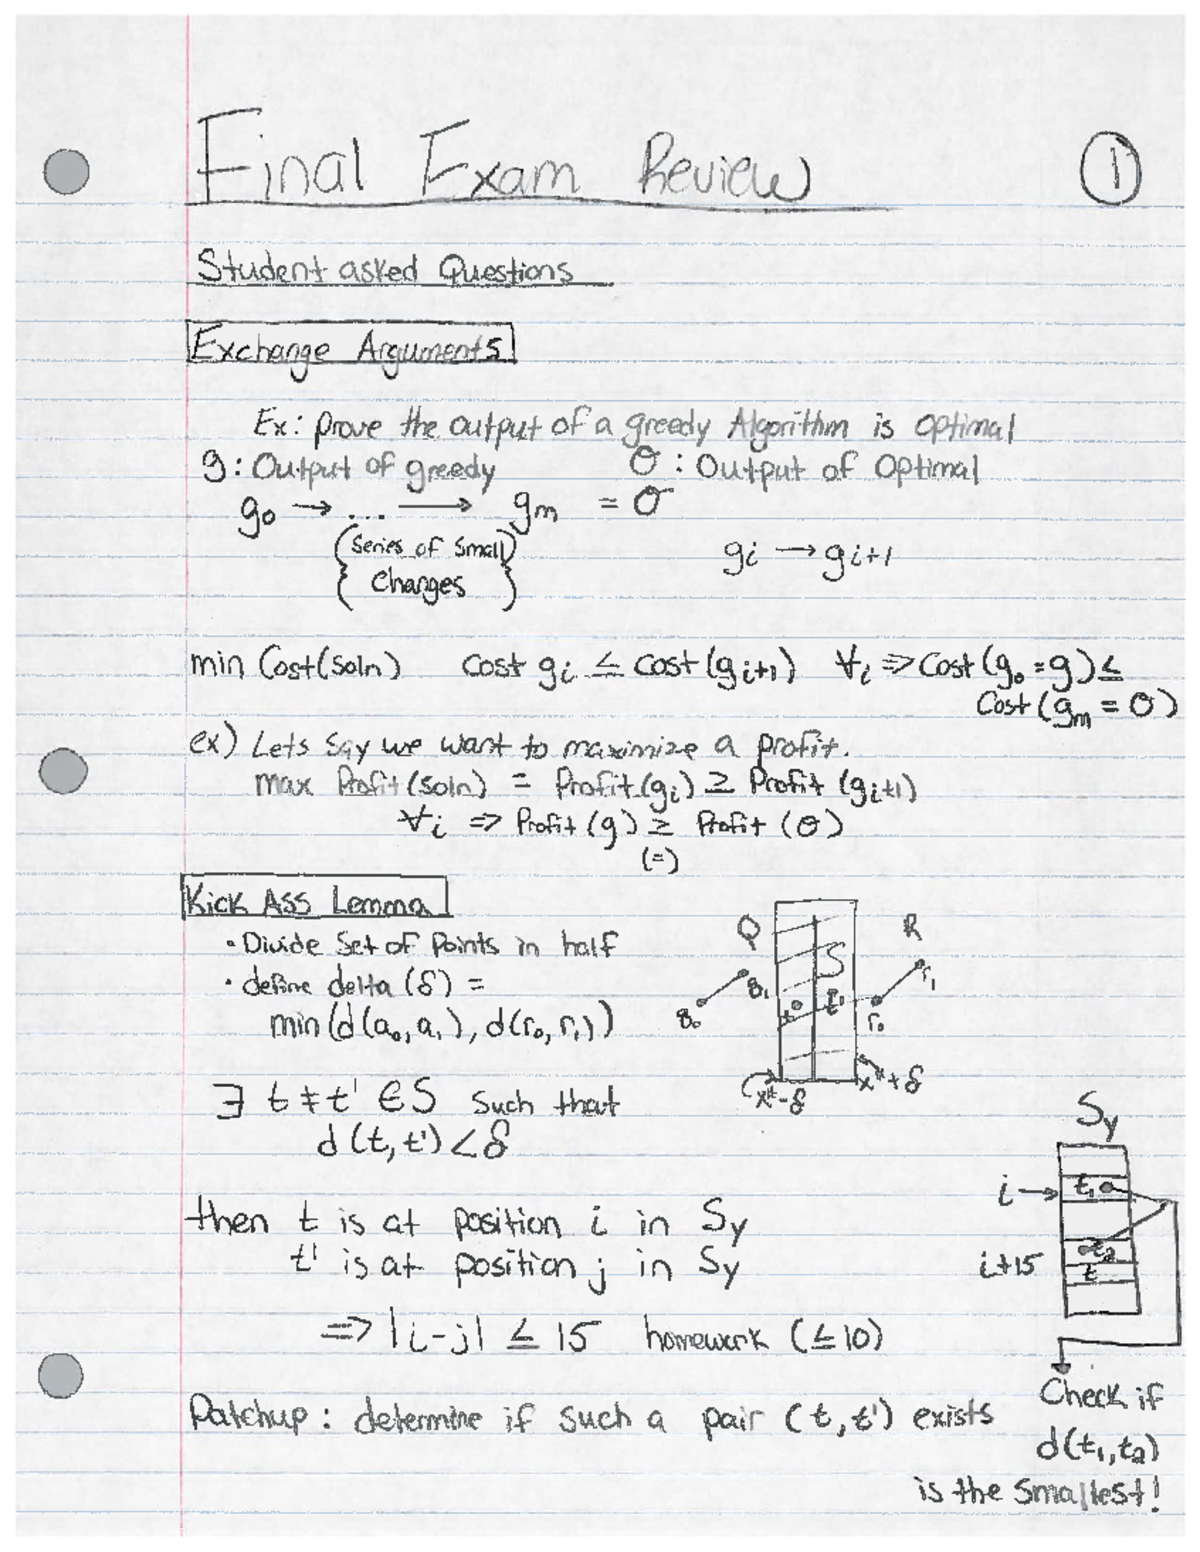 Final Exam Review
1
Student asked Questions
Exchange Arguments
Ex: prove the output of a greedy Algorithm is optimal
g: Output of greedy    O: Output of Optimal
g₀ → ... → gₘ = O
(Series of Small Changes)
gᵢ → gᵢ₊₁
min Cost(soln)  Cost gᵢ ≤ Cost(gᵢ₊₁)  ∀ᵢ ⇒ Cost(g₀ = g) ≤
Cost(gₘ = O)
ex) Lets Say we want to maximize a profit.
max Profit(soln) = Profit(gᵢ) ≥ Profit (gᵢ₊₁)
∀ᵢ ⇒ Profit(g) ≥ Profit (O)
(=)
Kick Ass Lemma
• Divide Set of Points in half
• define delta (δ) =
min(d(a₀, a₁), d(r₀, r₁))
Q
S
R
q₀
q₁
t
t'
r₀
r₁
x*-δ
x*+δ
∃ t ≠ t' ∈ S Such that
d(t, t') < δ
then t is at position i in Sy
t' is at position j in Sy
⇒ |i-j| ≤ 15  homework (≤10)
Sy
i →
t₁
i+15
t₂
t
Patchup: determine if such a pair (t, t') exists
Check if
d(t₁, t₂)
is the smallest!